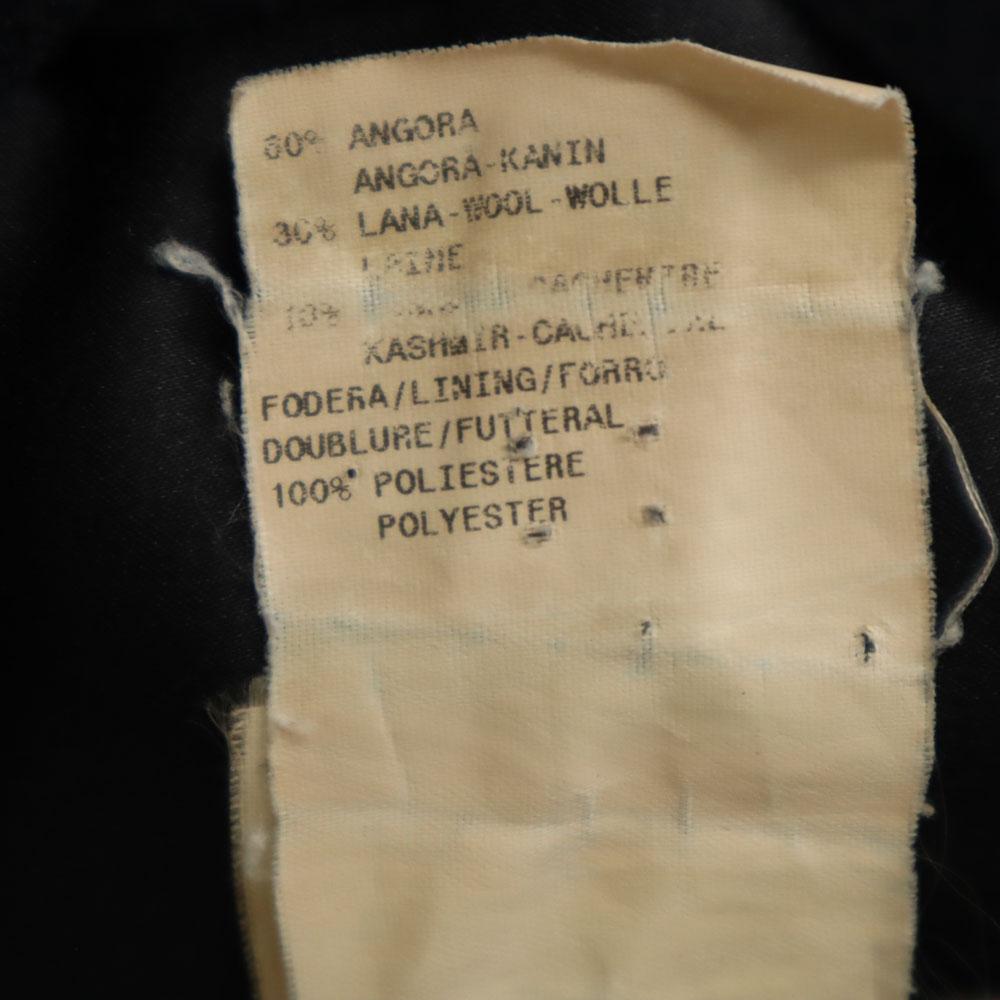 60% ANGORA
ANGORA-KANIN
30% LANA-WOOL-WOLLE
LAINE
10% CACHEMIRE
KASHMIR-
FODERA/LINING/FORRO
DOUBLURE/FUTTERAL
100% POLIESTERE
POLYESTER